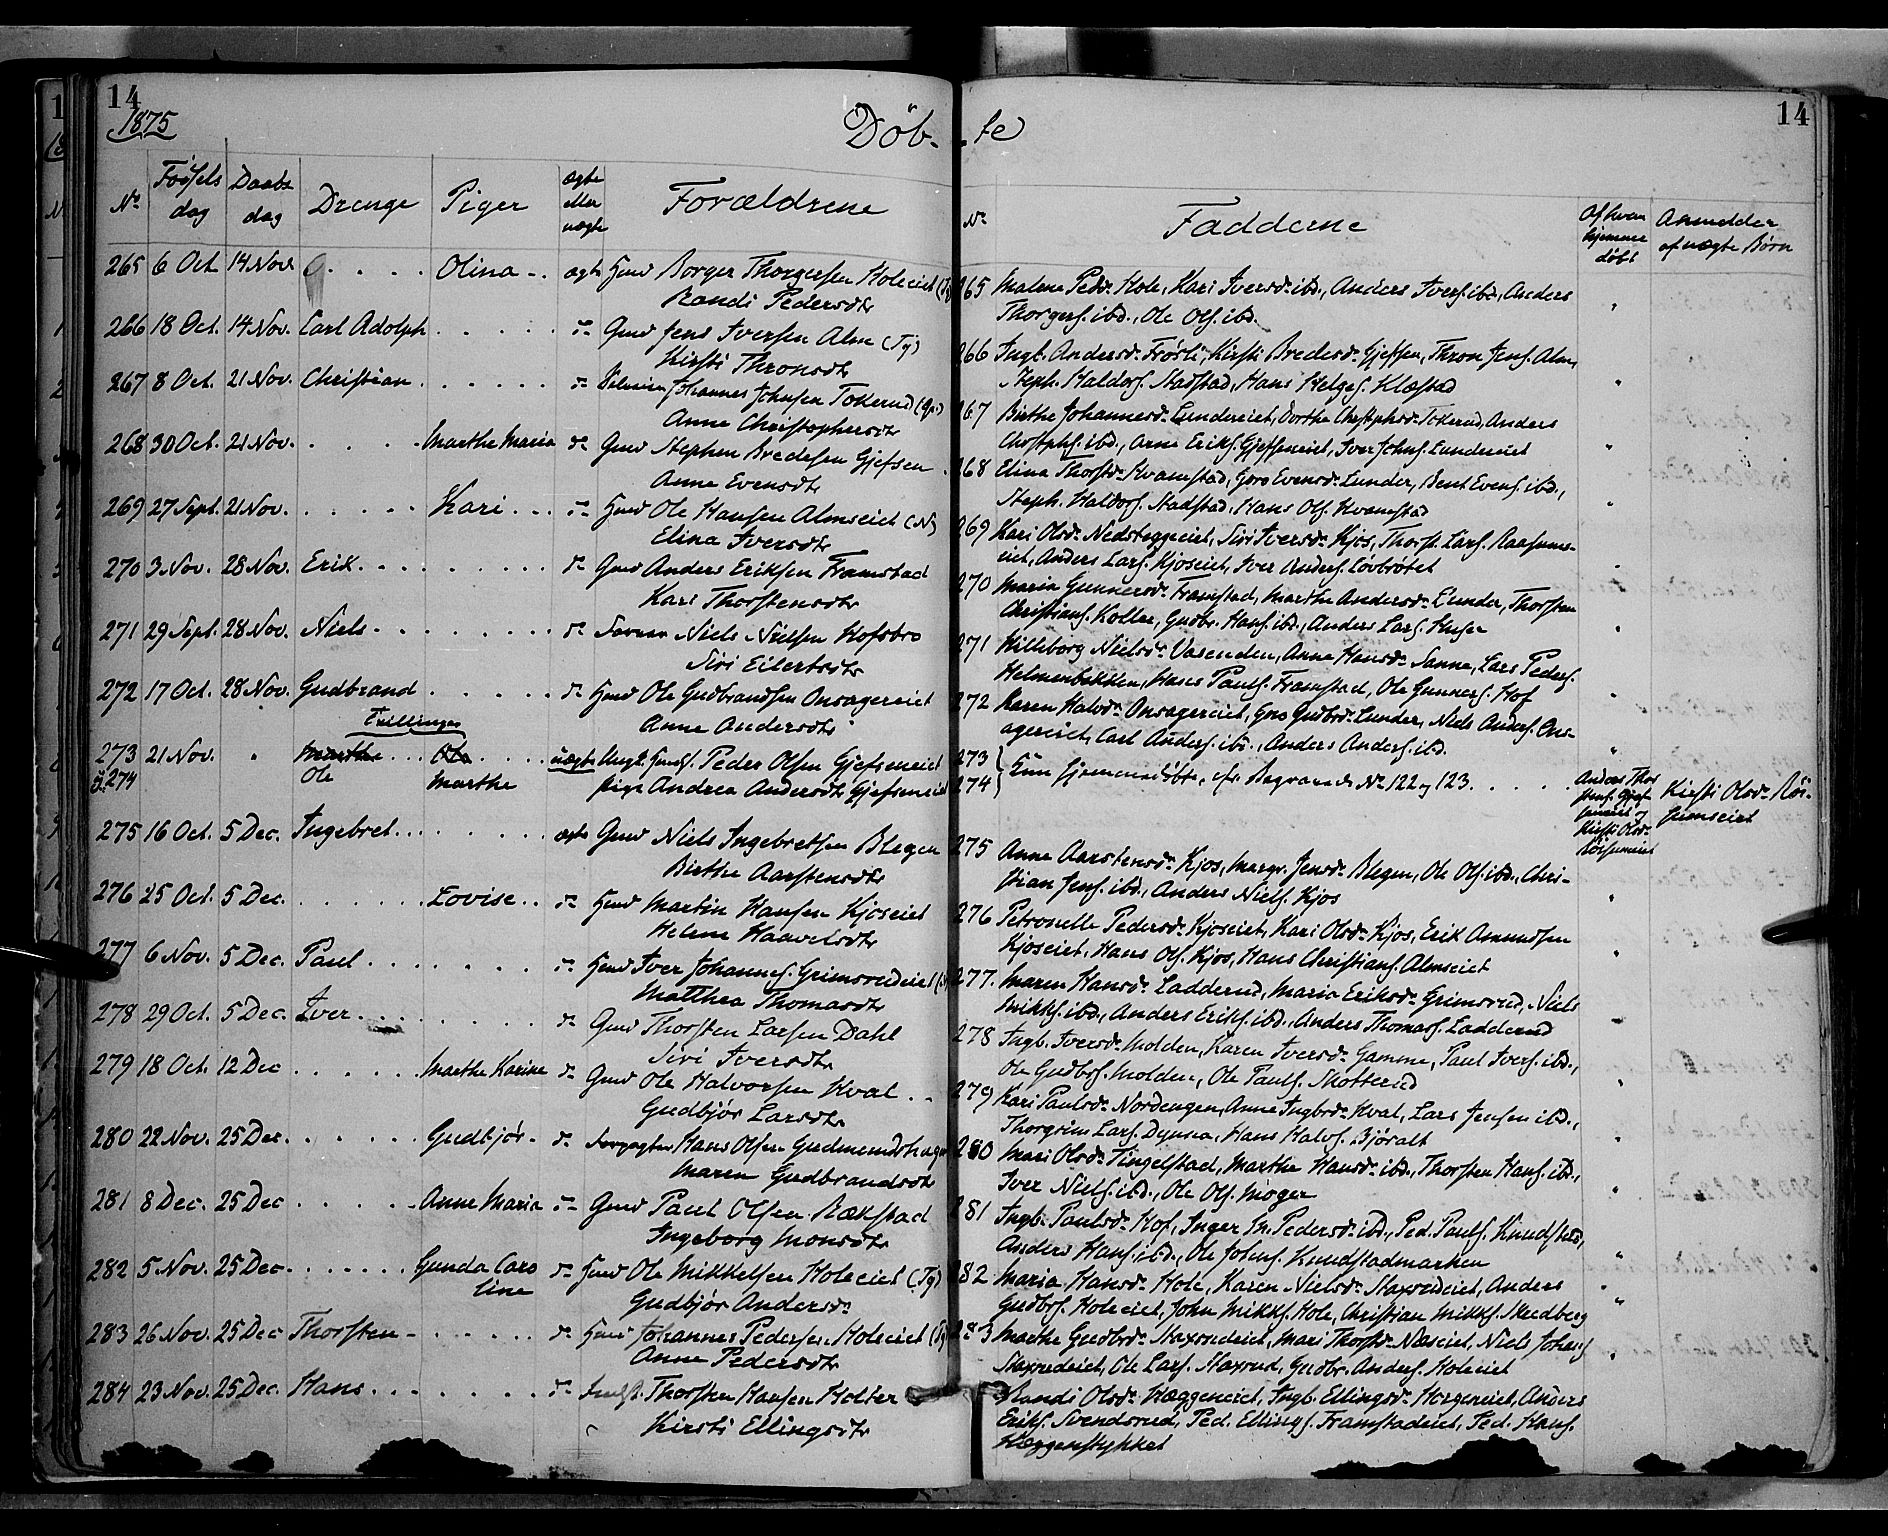 14
1875
Døb-
No
Fødsels dag
Daabs dag
Drenge
Piger
ægte eller uægte
Forældrene
265 6 Oct 14 Nov. . . . . Olina - . ægte Huusm Borger Thorgersen Holeeiet (Tg)
Randi Pedersdtr
266 18 Oct. 14 Nov. Carl Adolph . . . . . do Gmd Jens Iversen Alm (Tg)
Kirsti Thronsdtr
267 8 Oct. 21 Nov. Christian . . . . . . do Johannes Johnsen Tokerud (Gr.)
Anne Christophersdtr
268 30 Oct. 21 Nov. . . . Marthe Maria do Gmd Stephen Bredesen Gjefsen .
Anne Evensdtr
269 27 Sept. 21 Nov. . . . . . . Kari . . . do Huusm Ole Hansen Almseiet (N)
Elina Iversdtr
270 3 Nov. 28 Nov. Erik . . . . . . . . . do Gmd Anders Eriksen Framstad
Kari Thorstensdtr
271 29 Sept. 28 Nov. Niels . . . . . . . . do Niels Nielsen Hofsbro
Siri Eilertsdtr
272 17 Oct. 28 Nov. Gudbrand . . . . . do Huusm Ole Gudbrandsen Onsagereiet
Anne Andersdtr
Tvillinger
273 21 Nov. " Marthe . . . Ole . . . . uægte Ungk. Peder Olsen Gjefseneiet
& 274 Ole Marthe Pige Andrea Andersdtr Gjefseneiet
275 16 Oct. 5 Dec. Ingebret . . . . . . . ægte Gmd Niels Ingebretsen Blegen
Birthe Aarstensdtr
276 25 Oct. 5 Dec. . . . . . . Lovise . . do Huusm Martin Hansen Kjoseiet
Helene Haavelsdtr
277 6 Nov. 5 Dec. Paul . . . . . . . do Huusm Iver Johannes. Grimsrudeiet
Matthea Thomasdtr
278 29 Oct. 5 Dec. Iver . . . . . . . . . do Gmd Thorsten Larsen Dahl
Siri Iversdtr
279 18 Oct. 12 Dec . . . . . . Marthe Karine do Gmd Ole Halvorsen Hval . .
Gudbjør Larsdtr
280 22 Nov. 25 Dec. . . . . . . Gudbjør - do Hans Olsen Gudmundshagen
Maren Gudbrandsdtr
281 8 Dec. 25 Dec . . . . . . Anne Maria do Gmd Paul Olsen Rækstad
Ingeborg Monsdtr
282 5 Nov. 25 Dec. . . . . . . Gunda Caro do Huusm Ole Mikkelsen Holeeiet (Tg)
line Gudbjør Andersdr
283 26 Nov. 25 Dec Thorsten - . . . . . do Huusm Johannes Pedersen Holeeiet (Tg)
Anne Pedersdtr
284 23 Nov. 25 Dec. Hans . . . . . . . . do Thorsten Hansen Holter
Kirsti Ellingsdtr
14
te
No
Fadderne
Af hvem hjemmedøbt
Anmelder af uægte Børn
265 Malene Pedsdr Hole, Kari Iversdr ibd., Anders Ivers. ibd., Anders
Thorgers. ibd., Ole Ols. ibd.
266 Ingb. Andersdr Frøsli, Kirsti Bredesdr Gjefsen, Thron Jens. Alm,
Steph. Haldors. Stadstad, Hans Helges. Klæstad
267 Birthe Johannesdr Lundereiet, Dorthe Christophsdr Tokerud, Anders
Christphs. ibd., Arne Eriks. Gjefseneiet, Iver Johns. Lundereiet
268 Elina Thorstdr Kvamstad, Goro Evensdr Lunder, Bent Evens. ibd.,
Steph. Haldors. Stadstad, Hans Ols. Kvamstad
269 Kari Olsdr Iversdr Kjos, Thorst. Lars. Raasums-
eiet, Anders Lars. Kjoseiet, Iver Anders. Løvbrøtet
270 Maria Gunnersdr Framstad, Marthe Andersdr Lunder, Thorsten
Christians. Koller, Gudbr. Hans. ibd., Anders Lars.
271 Killeborg Nielsdr Vasenden, Anne Hansdr Sanne, Lars Peders.
Hans Pauls. Framstad, Ole Gunners. Hof
272 Karen Halvsdr Onsagereiet, Goro Gudbrdr Lunder, Niels Anders. Ons-
agereiet, Carl Anders. ibd., Anders Anders. ibd.
273
274 } Kun hjemmedøbte, cfr. Begravede No 122 og 123 . . . . . Anders Thorstens. Gjefseneiet og Kirsti Olsdr Røisumeiet Kirsti Olsdr Røisumseiet
275 Anne Aarstensdr Kjos, Margr. Jensdr Blegen, Ole Ols. ibd., Chri-
stian Jens. ibd., Anders Niels. Kjos
276 Petronelle Pedersdr Kjoseiet, Kari Olsdr Kjos, Erik Amundsen
Kjoseiet, Hans Ols. Kjos, Hans Christians. Almseiet
277. Maren Hansdr Ladderud, Maria Eriksdr Grimsrud, Niels
Mikks. ibd., Anders Eriks. ibd., Anders Thomas. Ladderud
278 Ingb. Iversdr Molden, Karen Iversdr Gamme, Paul Ivers. ibd.,
Ole Gudbrs. Molden, Ole Pauls. Skotterud
279 Kari Paulsdr Nordengen, Anne Ingbrdr Hval, Lars Jensen ibd.,
Thorgrim Lars. Dynna, Hans Halvs. Bjøralt
280 Mari Olsdr Tingelstad, Marthe Hansdr ibd., Thorsten Hans. ibd.,
Iver Niels. ibd., Ole Ols. Moger
281 Ingb. Paulsdr Hof, Inger M. Pedersdr ibd., Ped. Pauls. Knudstad,
Anders Hans. ibd., Ole Johns. Knudstadmarken
282 Maria Hansdr Hole, Karen Nielsdr Staxrudeiet, Anders
Gudbrs. Holeeiet, John Mikks. Hole, Christian Mikks. Skredberg
283 Marthe Gudbrdr Staxrudeiet, Mari Thorstdr Næseiet, Niels Johans.
Staxrudeiet, Ole Lars. Staxrud, Gudbr. Anders. Holeeiet
Randi Olsdr Hæggeneiet, Ingb. Ellingsdr Horgeneiet, Anders
Eriks. Svendsrud, Ped. Ellings. Framstadeiet, Ped. Hans.
Hæggenstykket